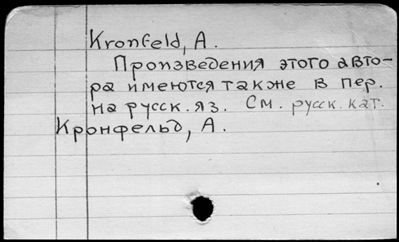 Kronfeld, A.
Произведения этого авто-
ра имеются также в пер.
на русск. яз. См. русск. кат.
Кронфельд, А.